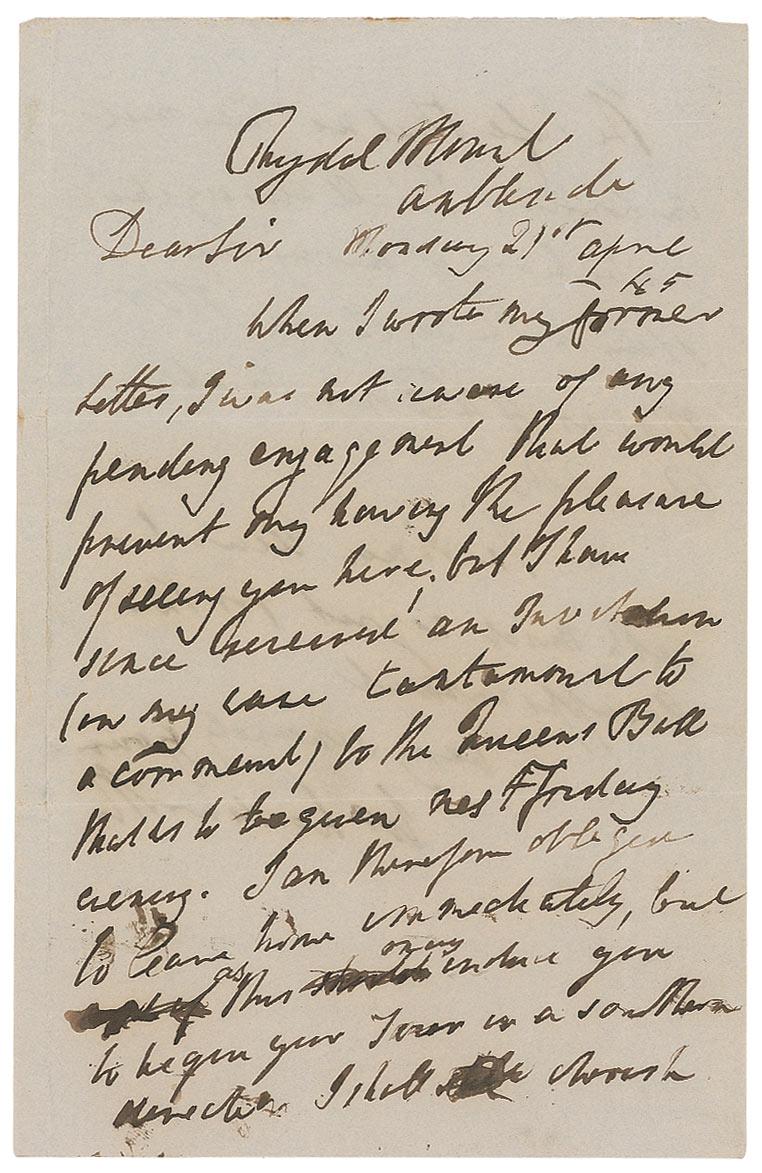 Rydal Mount
Ambleside
Dear Sir Monday 21st April
45
When I wrote my former
letter, I was not aware of any
pending engagement that would
prevent my having the pleasure
of seeing you here; but I have
since received an Invitation
(in my case tantamount to
a command) to the Queens Ball
that is to be given next Friday
evening. I am therefore obliged
to leave home immediately, but
as this may induce you
to begin your Tour in a southern
direction I shall cherish